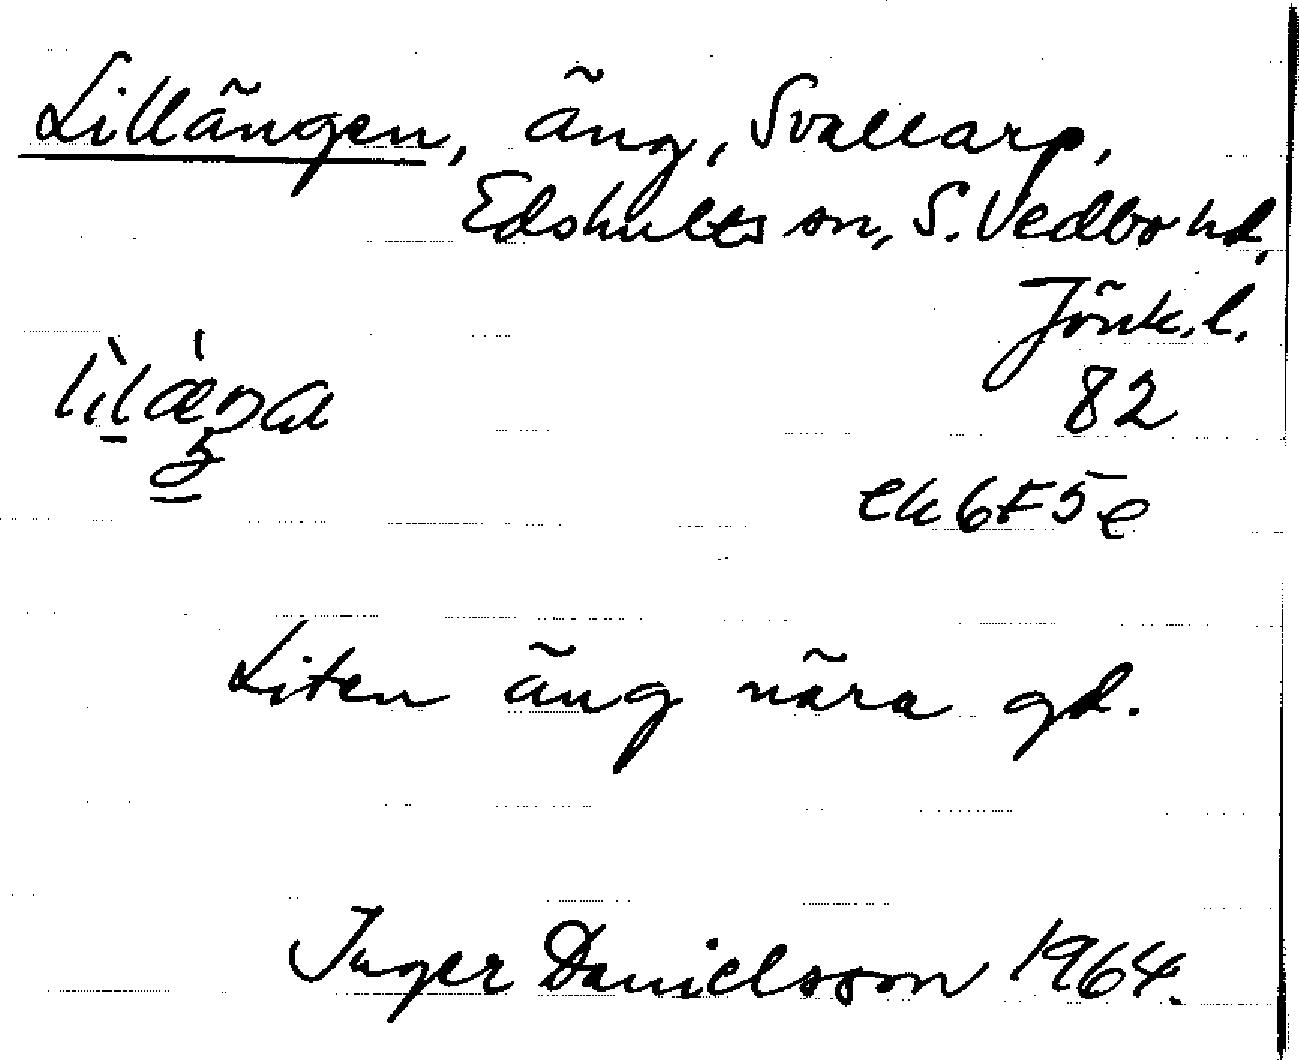 Lillängen, äng, Svallarp,
Edshults sn, S. Vedbo hd,
Jönk. l.
82
ek 6F5e
Liten äng nära gd.
Inger Danielsson 1964.